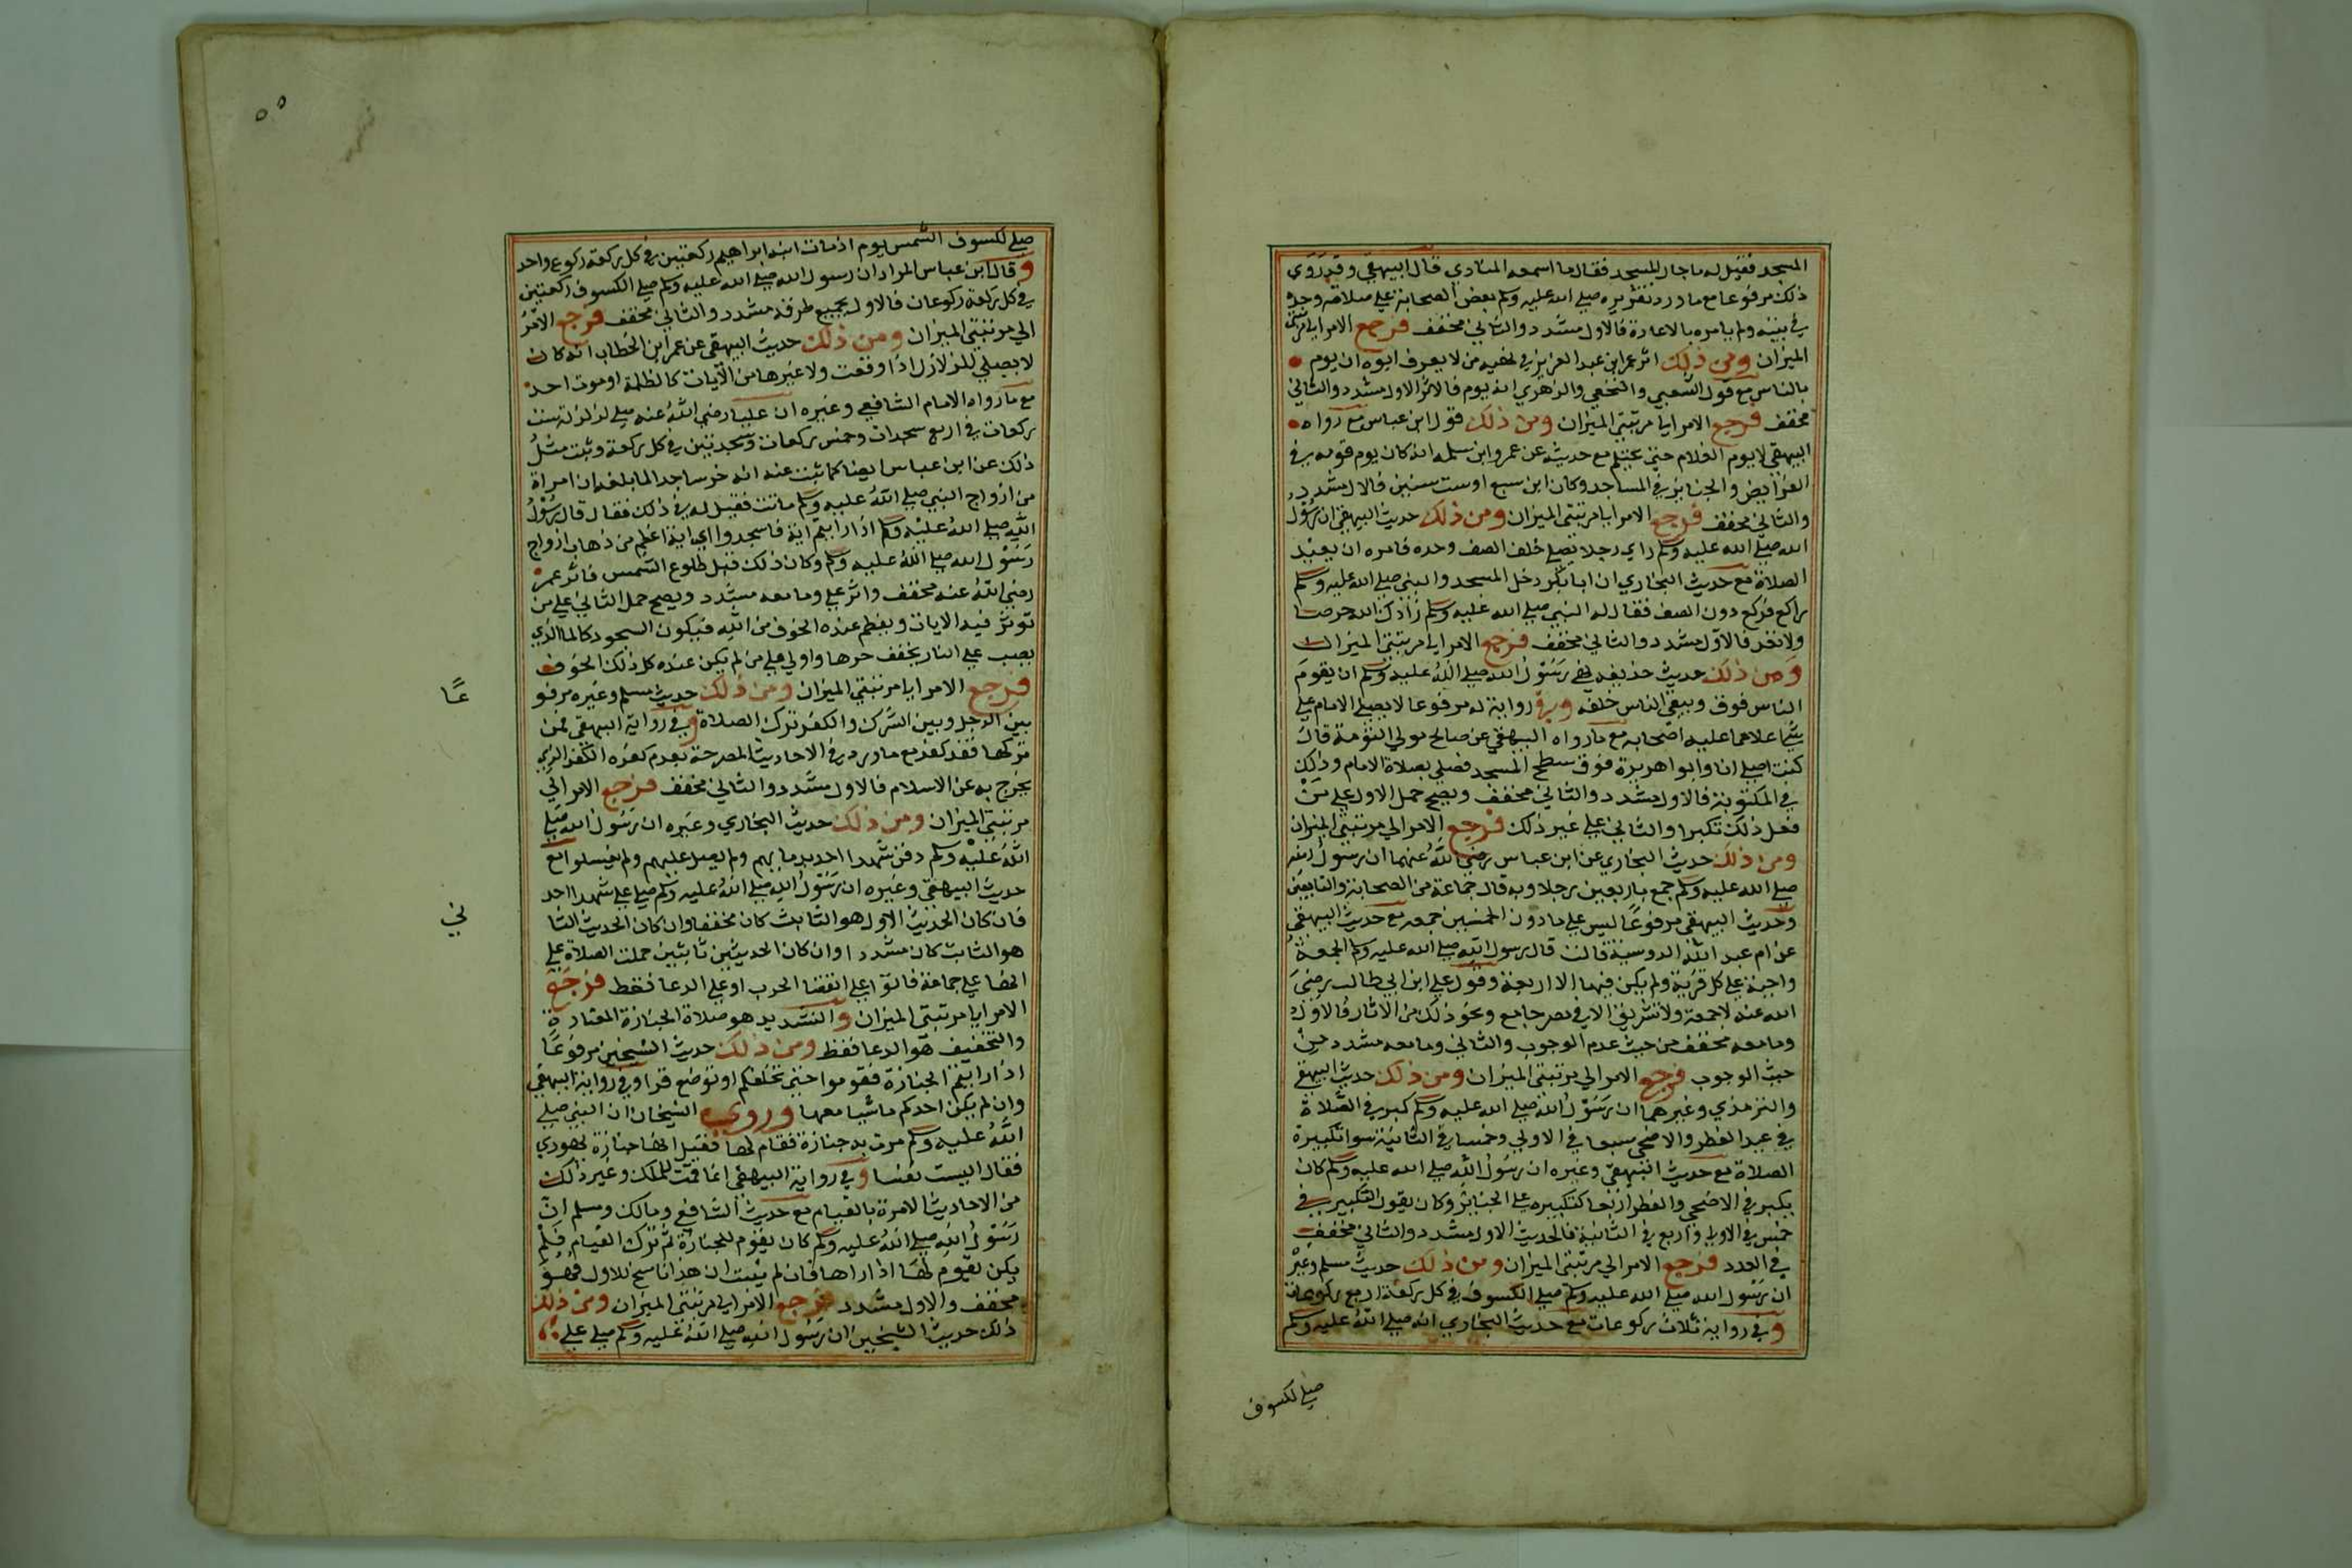 المسجد فقيل له ما جار المسجد فقال ما اسمعه المنادي قال البيهقي وقد روي
ذلك مرفوعا مع ما ورد تقريره صلي الله عليه وسلم بعض الصحابة علي صلاته وحده
في بيته ولم يامره بالاعادة فالاول مشدد والثاني مخفف فرجع الامر الي مرتبتي
الميزان ومن ذلك اثر عمر ابن عبد العزيز في نهيه من لا يعرف ابوه ان يوم
بالناس مع قول الشعبي والنخعي والزهري انه يوم فالاثر الاول مشدد والثاني
مخفف فرجع الامر الي مرتبتي الميزان ومن ذلك قول ابن عباس مع رواه
البيهقي لا يوم الغلام حتي يحتلم مع حديثه عن عمرو ابن سلمه انه كان يوم قومه في
الفرائض والجنايز في المساجد وكان ابن سبع او ست سنين فالاول مشدد
والثاني مخفف فرجع الامر الي مرتبتي الميزان ومن ذلك حديث البيهقي ان رسول
الله صلي الله عليه وسلم راي رجلا يصلي خلف الصف وحده فامره ان يعيد
الصلاة مع حديث البخاري ان ابا بكر دخل المسجد والنبي صلي الله عليه وسلم
راكع فركع دون الصف فقال له النبي صلي الله عليه وسلم زادك الله حرصا
ولا تعد فالاول مشدد والثاني مخفف فرجع الامر الي مرتبتي الميزان
ومن ذلك حديث حذيفه نهي رسول الله صلي الله عليه وسلم ان يقوم
الناس فوق ويبقي الناس خلفه وفي رواية له مرفوعا لا يصلي الامام علي
شي اعلا مما عليه اصحابه مع ما رواه البيهقي عن صالح مولي التؤمة قال
كنت اصلي انا وابو هريرة فوق سطح المسجد فصلي بصلاة الامام وذلك
في المكتوبة فالاول مشدد والثاني مخفف ويصح حمل الاول علي من
فعل ذلك تكبرا والثاني علي غير ذلك فرجع الامر الي مرتبتي الميزان
ومن ذلك حديث البخاري عن ابن عباس رضي الله عنهما ان رسول الله
صلي الله عليه وسلم جمع باربعين رجلا وبه قال جماعة من الصحابة والتابعين
وحديث البيهقي مرفوعا ليس علي ما دون الخمسين جمعه مع حديث البيهقي
عن ام عبد الله الدوسية قالت قال رسول الله صلي الله عليه وسلم الجمعة
واجبة علي كل قرية ولم يكن فيها الا اربعة وقول علي ابن ابي طالب رضي
الله عنه لا جمعة ولا تشريق الا في مصر جامع ونحو ذلك من الاثار فالاول
وما معه مخفف من حيث عدم الوجوب والثاني وما معه مشدد من
حيث الوجوب فرجع الامر الي مرتبتي الميزان ومن ذلك حديث البيهقي
والترمذي وغيرهما ان رسول الله صلي الله عليه وسلم كبر في الصلاة
في عيد الفطر والاضحي سبعا في الاولي وخمسا في الثانية سوا تكبيرة
الصلاة مع حديث البيهقي وغيره ان رسول الله صلي الله عليه وسلم كان
يكبر في الاضحي والفطر اربعا كتكبيره علي الجنائز وكان يقول التكبير في
خمس في الاولي واربع في الثانية فالحديث الاول مشدد والثاني مخفف
في العدد فرجع الامر الي مرتبتي الميزان ومن ذلك حديث مسلم وغيره
ان رسول الله صلي الله عليه وسلم صلي الكسوف في كل ركعة اربع ركوعات
وفي رواية ثلاث ركوعات مع حديث البخاري انه صلي الله عليه وسلم
صلي لكسوف
٥٥
صلي لكسوف الشمس يوم اذ مات ابنه ابراهيم ركعتين في كل ركعة ركوع واحد
وقال ابن عباس المراد ان رسول الله صلي الله عليه وسلم صلي الكسوف ركعتين
في كل ركعة ركوعان فالاول بجميع طرقه مشدد والثاني مخفف فرجع الامر
الي مرتبتي الميزان ومن ذلك حديث البيهقي عن عمر ابن الخطاب انه كان
لا يصلي للزلازل اذا وقعت ولا غيرها من الآيات كالظلمة او موت احد
مع ما رواه الامام الشافعي وغيره ان عليا رضي الله عنه صلي لزلزلة ست
ركعات في اربع سجدات وخمس ركعات وسجدتين في كل ركعة وثبت مثل
ذلك عن ابن عباس ايضا كما ثبت عنه انه خر ساجد الما بلغه ان امراة
من ازواج النبي صلي الله عليه وسلم ماتت فقيل له في ذلك فقال قال رسول
الله صلي الله عليه وسلم اذا رايتم اية فاسجدوا اي اية اعظم من ذهاب ازواج
رسول الله صلي الله عليه وسلم وكان ذلك قبل طلوع الشمس فاثر عمر
رضي الله عنه مخفف واثر علي وما معه مشدد ويصح حمل الثاني علي من
توثر فيه الايات ويعظم عنده الخوف من الله فيكون السجود كالما الذي
يصب علي النار يخفف حرها والاولي علي من لم يكن عنده كل ذلك الخوف
فرجع الامر الي مرتبتي الميزان ومن ذلك حديث مسلم وغيره مرفو
عًا
بين الرجل وبين الشرك والكفر ترك الصلاة وفي رواية البيهقي فمن
تركها فقد كفر مع ما ورد في الاحاديث المصرحة بعدم كفره الكفر الذي
يخرج به عن الاسلام فالاول مشدد والثاني مخفف فرجع الامر الي
مرتبتي الميزان ومن ذلك حديث البخاري وغيره ان رسول الله صلي
الله عليه وسلم دفن شهدا احد بدمايهم ولم يصل عليهم ولم يغسلوا مع
حديث البيهقي وغيره ان رسول الله صلي الله عليه وسلم صلي علي شهدا احد
فان كان الحديث الاول هو الثابث كان مخففا وان كان الحديث الثا
ني
هو الثابت كان مشددا وان كان الحديثين ثابتين حملت الصلاة علي
علي جماعة علي انقضا الحرب او علي الدعا فقط فرجع
الامر الي مرتبتي الميزان والتشديد هو صلاة الجنازة المعتادة
والتخفيف هو الدعا فقط ومن ذلك حديث الشيخين مرفوعا
اذا رايتم الجنازة فقوموا حتي تخلفكم او توضع وفي رواية البيهقي
وان لم يكن احدكم ماشيا معها وروي الشيخان ان النبي صلي
الله عليه وسلم مرت به جنازة فقام لها فقيل انها جنازة يهودي
فقال اليست نفسا وفي رواية البيهقي انما قمت للملك وغير ذلك
من الاحاديث الامرة بالقيام مع حديث الشافعي ومالك ومسلم ان
رسول الله صلي الله عليه وسلم كان يقوم للجنازة ثم ترك القيام فلم
يكن يقوم لها اذا راها فان لم يثبت ان هذا ناسخ للاول فهو
مخفف والاول مشدد فرجع الامر الي مرتبتي الميزان ومن ذلك
ذلك حديث الشيخين ان رسول الله صلي الله عليه وسلم صلي علي